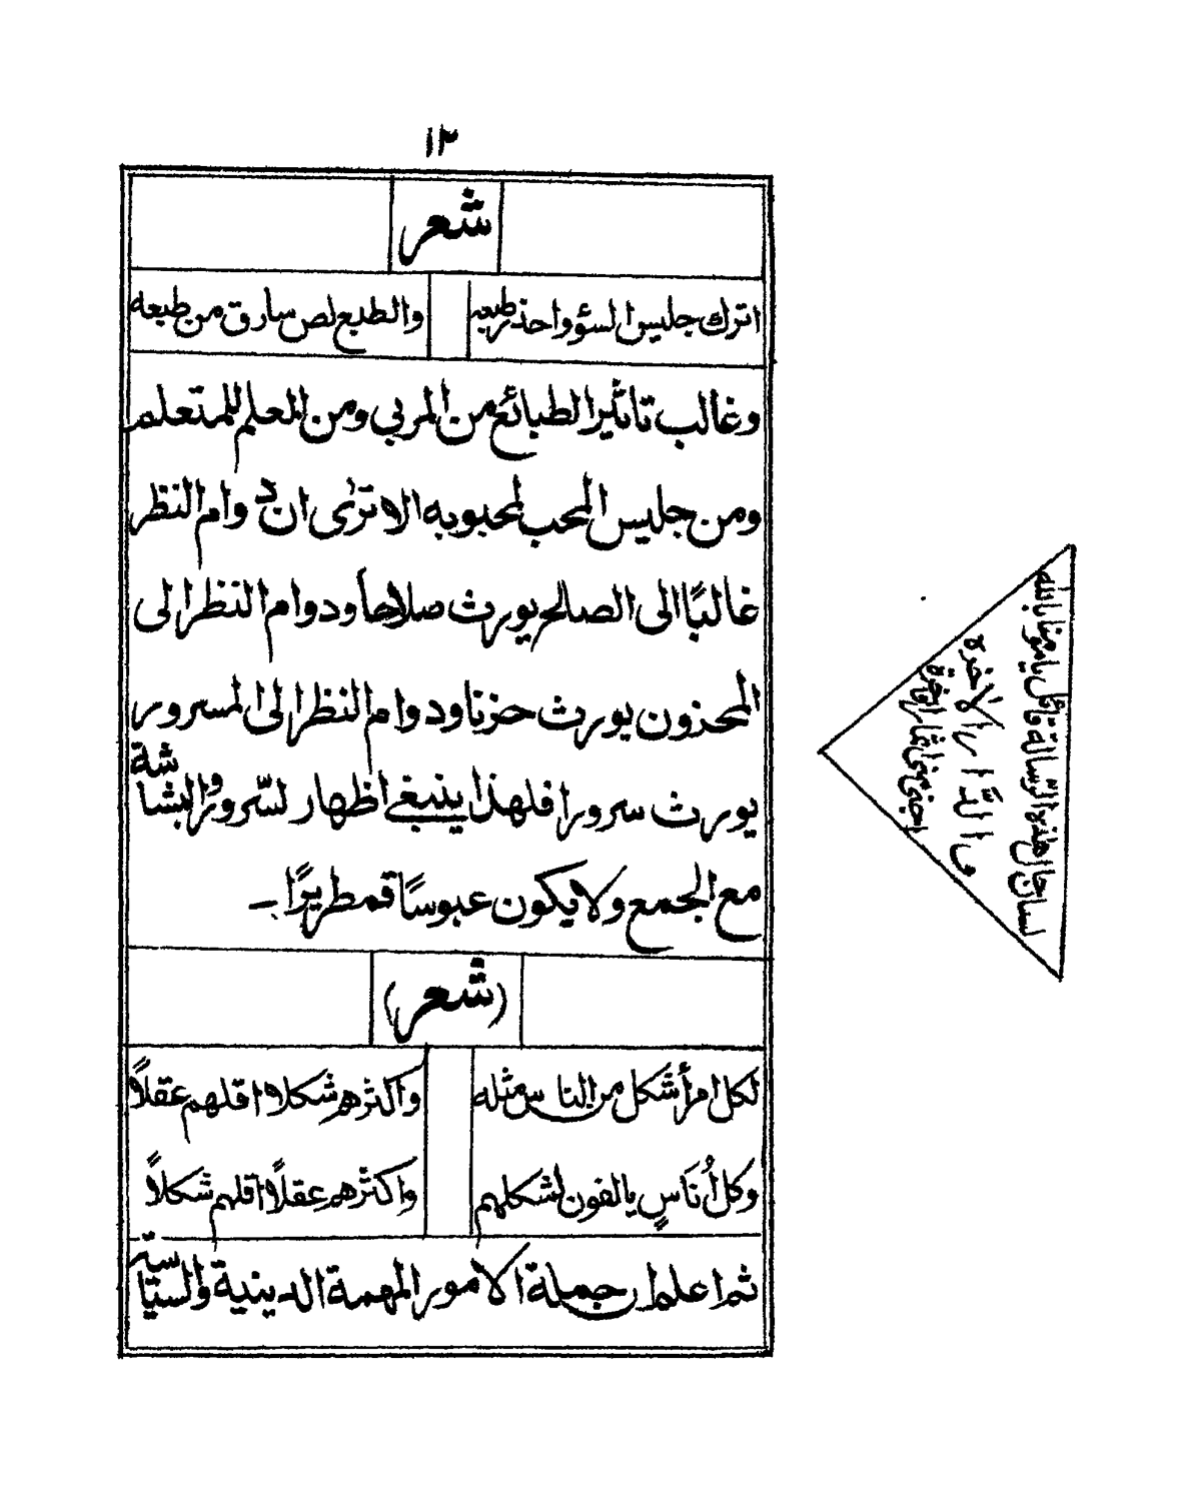 ١٢
شعر
اترك جليس السؤ واحذر طبعه والطبع لص سارق من طبعه
وغالب تاثير الطبائع من المربي ومن المعلم للمتعلم
ومن جليس المحب لمحبوبه الا ترى ان دوام النظر
غالبًا الى الصالح يورث صلاحا ودوام النظر الى
المحزون يورث حزنا ودوام النظر الى المسرور
يورث سرورا فلهذا ينبغي اظهار لسّرور والبشاشة
مع الجمع ولا يكون عبوسًا قمطريرًا۔
(شعر)
لكل امرأ شكل من الناس مثله واكثرهم شكلا اقلهم عقلاً
وكل أُنَاسٍ يالفون لشكلهم واكثرهم عقلاً اقلهم شكلاً
ثم اعلم ان جملة الامور المهمة الدينية والسيّاسة
لسان حال هذه الرسالة قائل يا مؤمنا بالله
والدار الاخرة